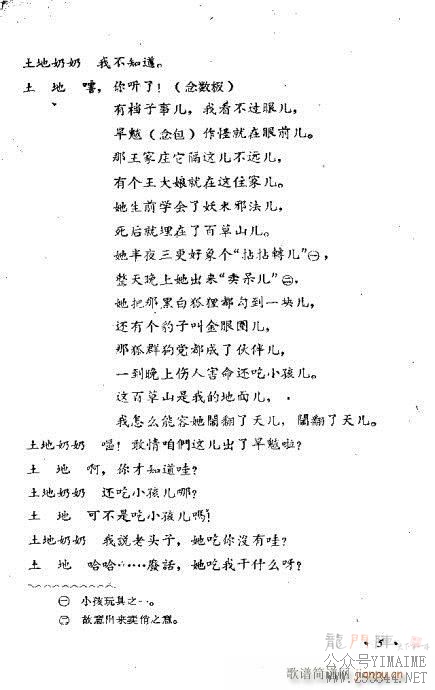 土地奶奶 我不知道。
土 地 嘻，你听了！（念数板）
有档子事儿，我看不过眼儿，
旱魃（念包）作怪就在眼前儿。
那王家庄它隔这儿不远儿，
有个王大娘就在这住家儿。
她生前学会了妖术邪法儿，
死后就埋在了百草山儿。
她半夜三更好象个“拈拈轉儿”㊀，
整天晚上她出来“卖呆儿”㊁，
她把那黑白狐狸都勾到一块儿，
还有个豹子叫金眼圈儿，
那狐群狗党都成了伙伴儿，
一到晚上伤人害命还吃小孩儿。
这百草山是我的地面儿，
我怎么能容她鬧翻了天儿，鬧翻了天儿。
土地奶奶 噁！敢情咱們这儿出了旱魃啦？
土 地 啊，你才知道哇？
土地奶奶 还吃小孩儿哪？
土 地 可不是吃小孩儿嗎！
土地奶奶 我說老头子，她吃你沒有哇？
土 地 哈哈……廢話，她吃我干什么呀？
㊀ 小孩玩具之一。
㊁ 故意出来卖俏之意。
· 5 ·
龍門陣
公众号YIMAIME
歌谱简谱网
www.255844.NET